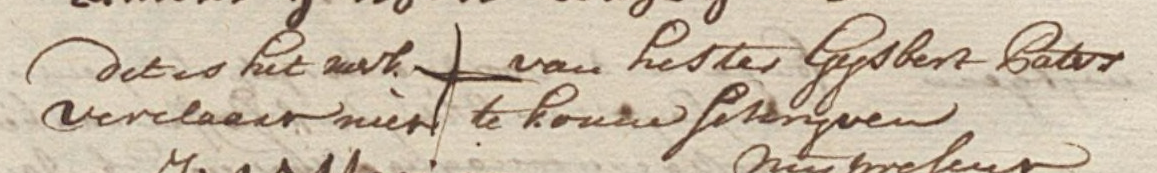 dit is het merk + van hester Gijsbert Paters
verclaert niet te konne schrijven
mij present